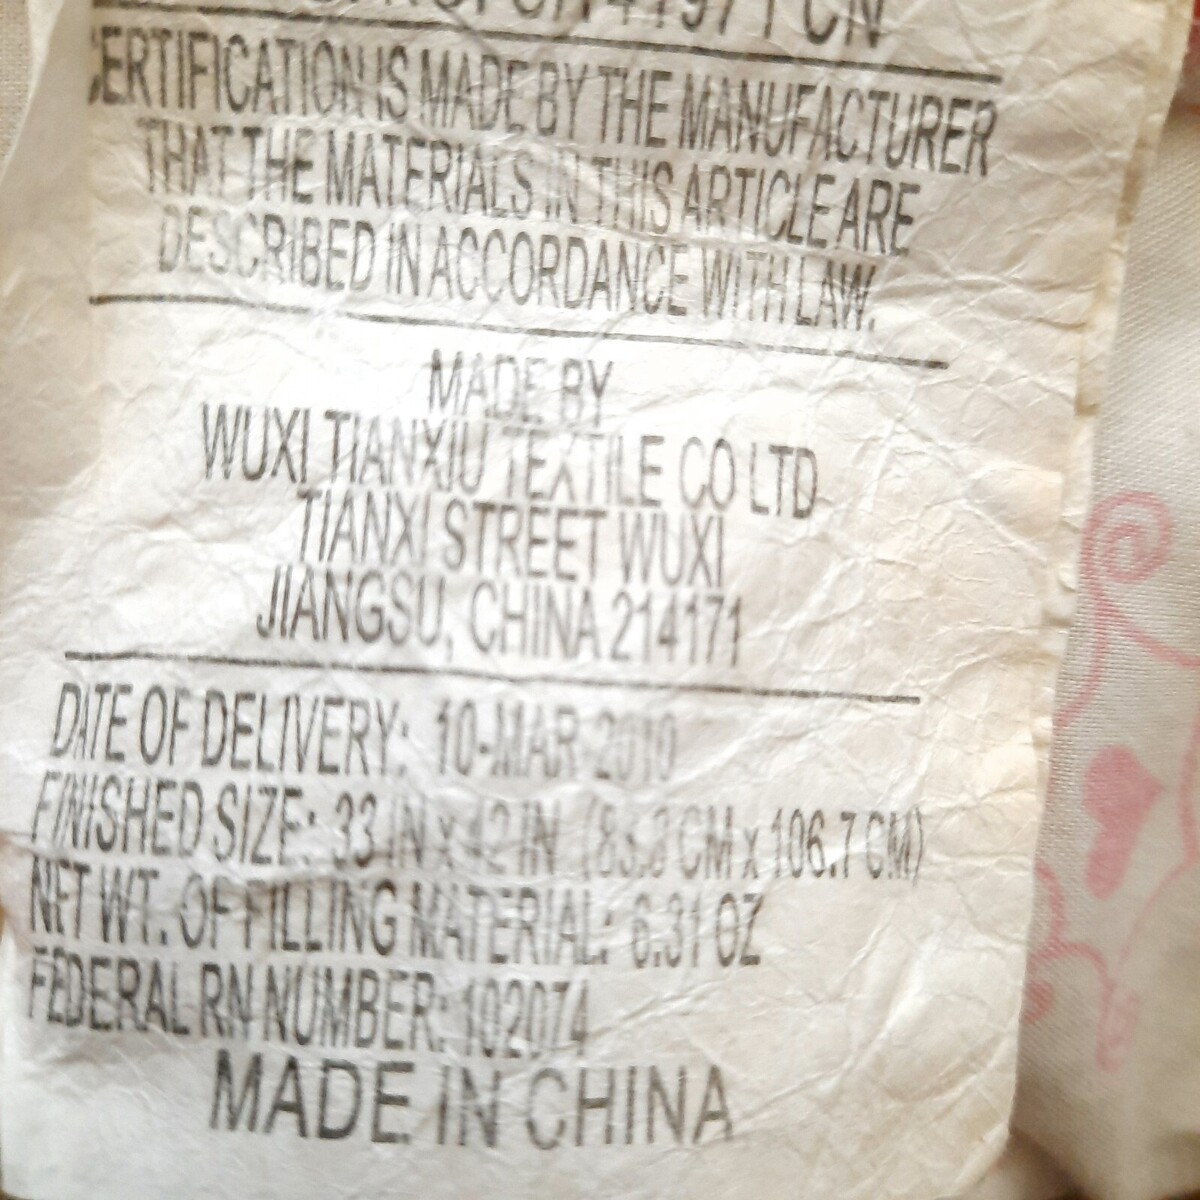 CERTIFICATION IS MADE BY THE MANUFACTURER
THAT THE MATERIALS IN THIS ARTICLE ARE
DESCRIBED IN ACCORDANCE WITH LAW.
MADE BY
WUXI TIANXIU TEXTILE CO LTD
TIANXI STREET WUXI
JIANGSU, CHINA 214171
DATE OF DELIVERY: 10-MAR
FINISHED SIZE: 33 IN x 42 IN (83.8 CM x 106.7 CM)
NET WT. OF FILLING MATERIAL: 6.31 OZ
FEDERAL RN NUMBER: 102074
MADE IN CHINA